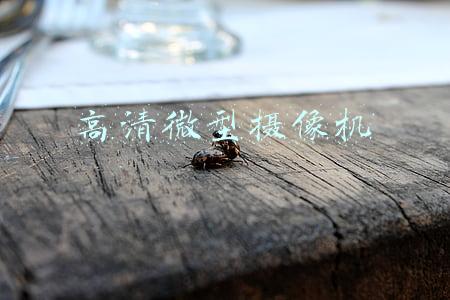 高清微型摄像机